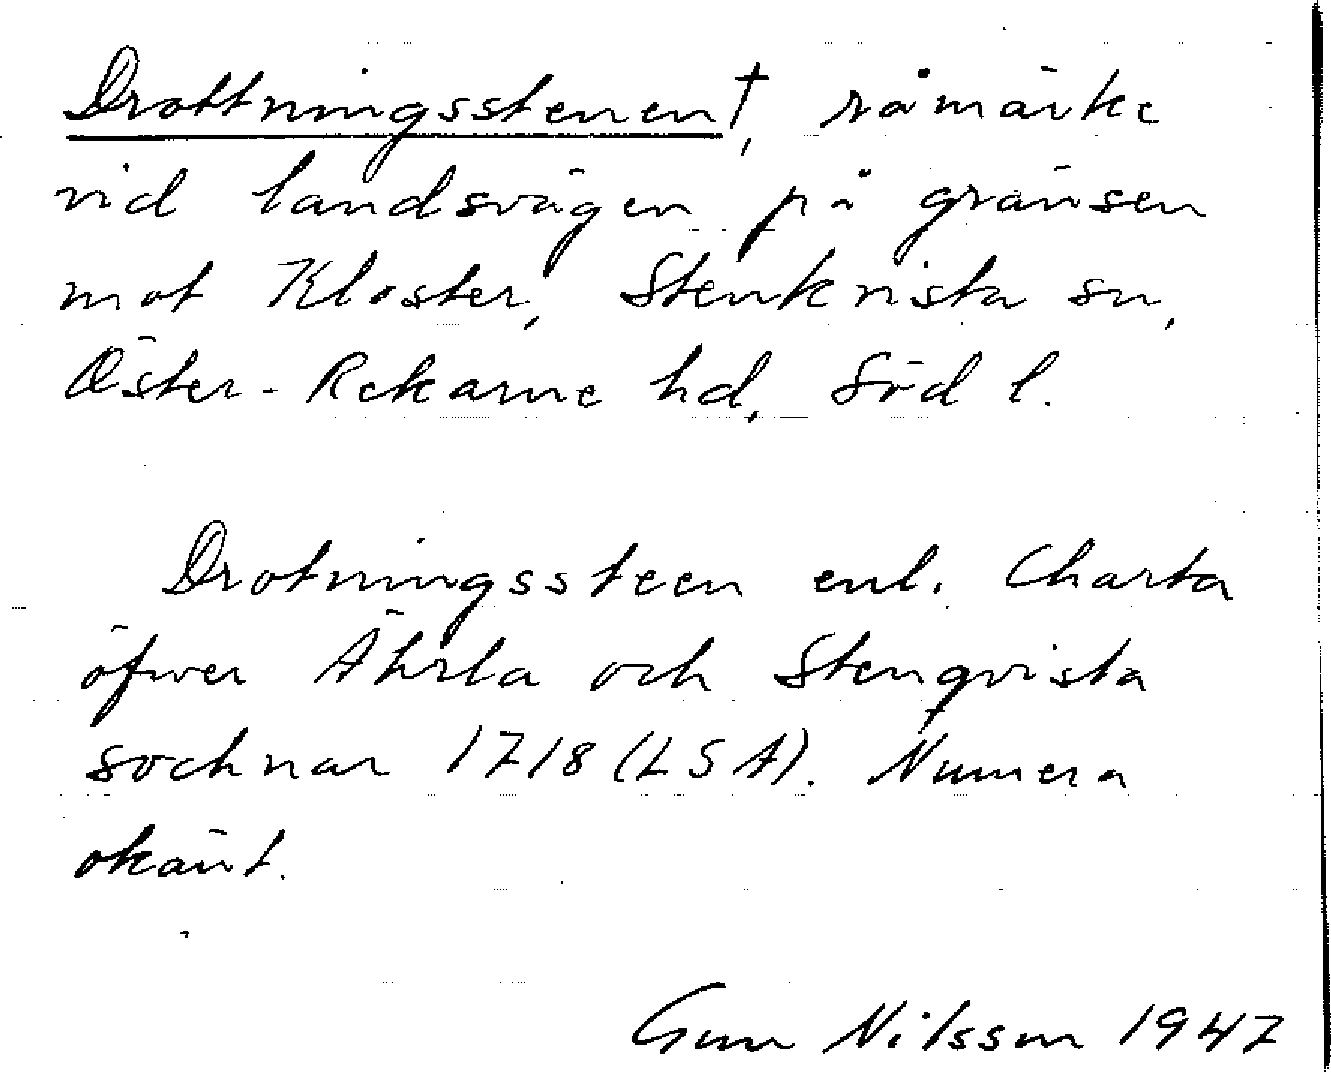 Drottningsstenen†, råmärke
vid landsvägen på gränsen
mot Kloster, Stenkvista sn,
Öster-Rekarne hd, Söd l.
Drotningssteen enl. Charta
öfwer Ährla och Stenqvista
sochnar 1718 (LSA). Numera
okänt.
Gun Nilsson 1947